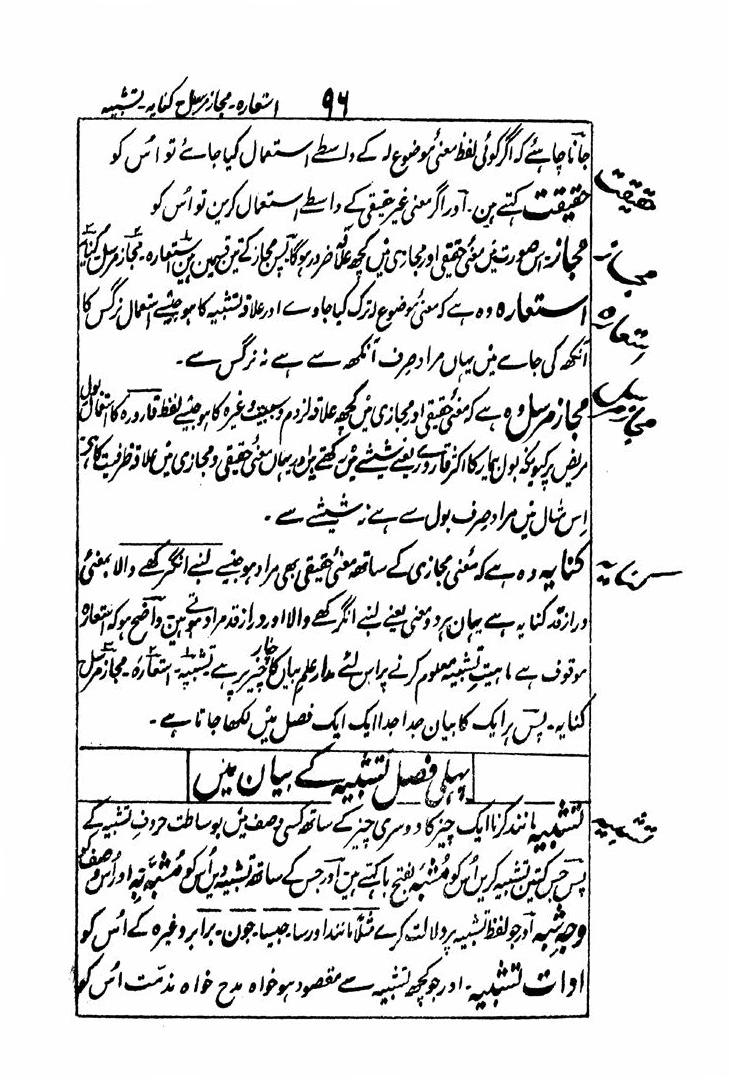 ۹۶ استعارہ۔ مجاز مرسل کنایہ۔ تشبیہ
جاننا چاہئے کہ اگر کوئی لفظ معنیٔ موضوع لہ کے واسطے استعمال کیا جائے تو اُس کو
حقیقت کہتے ہین۔ اور اگر معنی غیر حقیقی کے واسطے استعمال کرین تو اُس کو
مجاز۔ اس صورت میں معنی حقیقی اور مجازی میں کچھ علاقہ ضرور ہوگا۔ پس مجاز کے تین قسمین ہین استعارہ۔ مجاز مرسل کنایہ
استعارہ وہ ہے کہ معنی موضوع لہ ترک کیا جاوے اور علاقہ تشبیہ کا ہو جیسے استعمال نرگس کا
آنکھ کی جاے میں یہاں مراد صرف آنکھ سے ہے نہ نرگس سے۔
مجاز مرسل وہ ہے کہ معنی حقیقی اور مجازی میں کچھ علاقہ لزوم و سببیت وغیرہ کا ہو جیسے لفظ قارورہ کا استعمال بول
مریض پر کیونکہ بول بیمار کا اکثر قارورے یعنے شیشے میں رکھتے ہیں اور یہاں معنی حقیقی و مجازی میں علاقہ ظرفیت کا ہے
اِس مثال میں مراد صرف بول سے ہے نہ شیشے سے۔
کنایہ وہ ہے کہ معنی مجازی کے ساتھ معنی حقیقی بھی مراد ہو جیسے لنبے انگرکھے والا بمعنیٔ
دراز قد کنایہ ہے یہاں ہر دو معنی یعنے لنبے انگرکھے والا اور دراز قد مراد ہوتے ہین واضح ہو کہ استعارہ
موقوف ہے ماہیت تشبیہ معلوم کرنے پر اس لئے مدار علم بیان کا چار چیز پر ہے تشبیہ۔ استعارہ۔ مجاز مرسل
کنایہ۔ پس ہر ایک کا بیان جدا جدا ایک ایک فصل میں لکھا جاتا ہے۔
پہلی فصل تشبیہ کے بیان میں
تشبیہ مانند کرنا ایک چیز کا دوسری چیز کے ساتھ کسی وصف میں بوساطت حروف تشبیہ کے
پس جس کتین تشبیہ کریں اُس کو مُشبَّہ بفتح با کہتے ہین اور جس کے ساتھ تشبیہ دیں اُس کو مُشبَّہ بِہ اور اُس وصف کو
وجہِ شبہ اور جو لفظ تشبیہ پر دلالت کرے مثلاً مانند اور سا۔ جیسا۔ جون۔ برابر وغیرہ کے اُس کو
ادات تشبیہ۔ اور جو کچھ تشبیہ سے مقصود ہو خواہ مدح خواہ مذمت اُس کو
حقیقت
مجاز
استعارہ
مجاز مرسل
کنایہ
تشبیہ